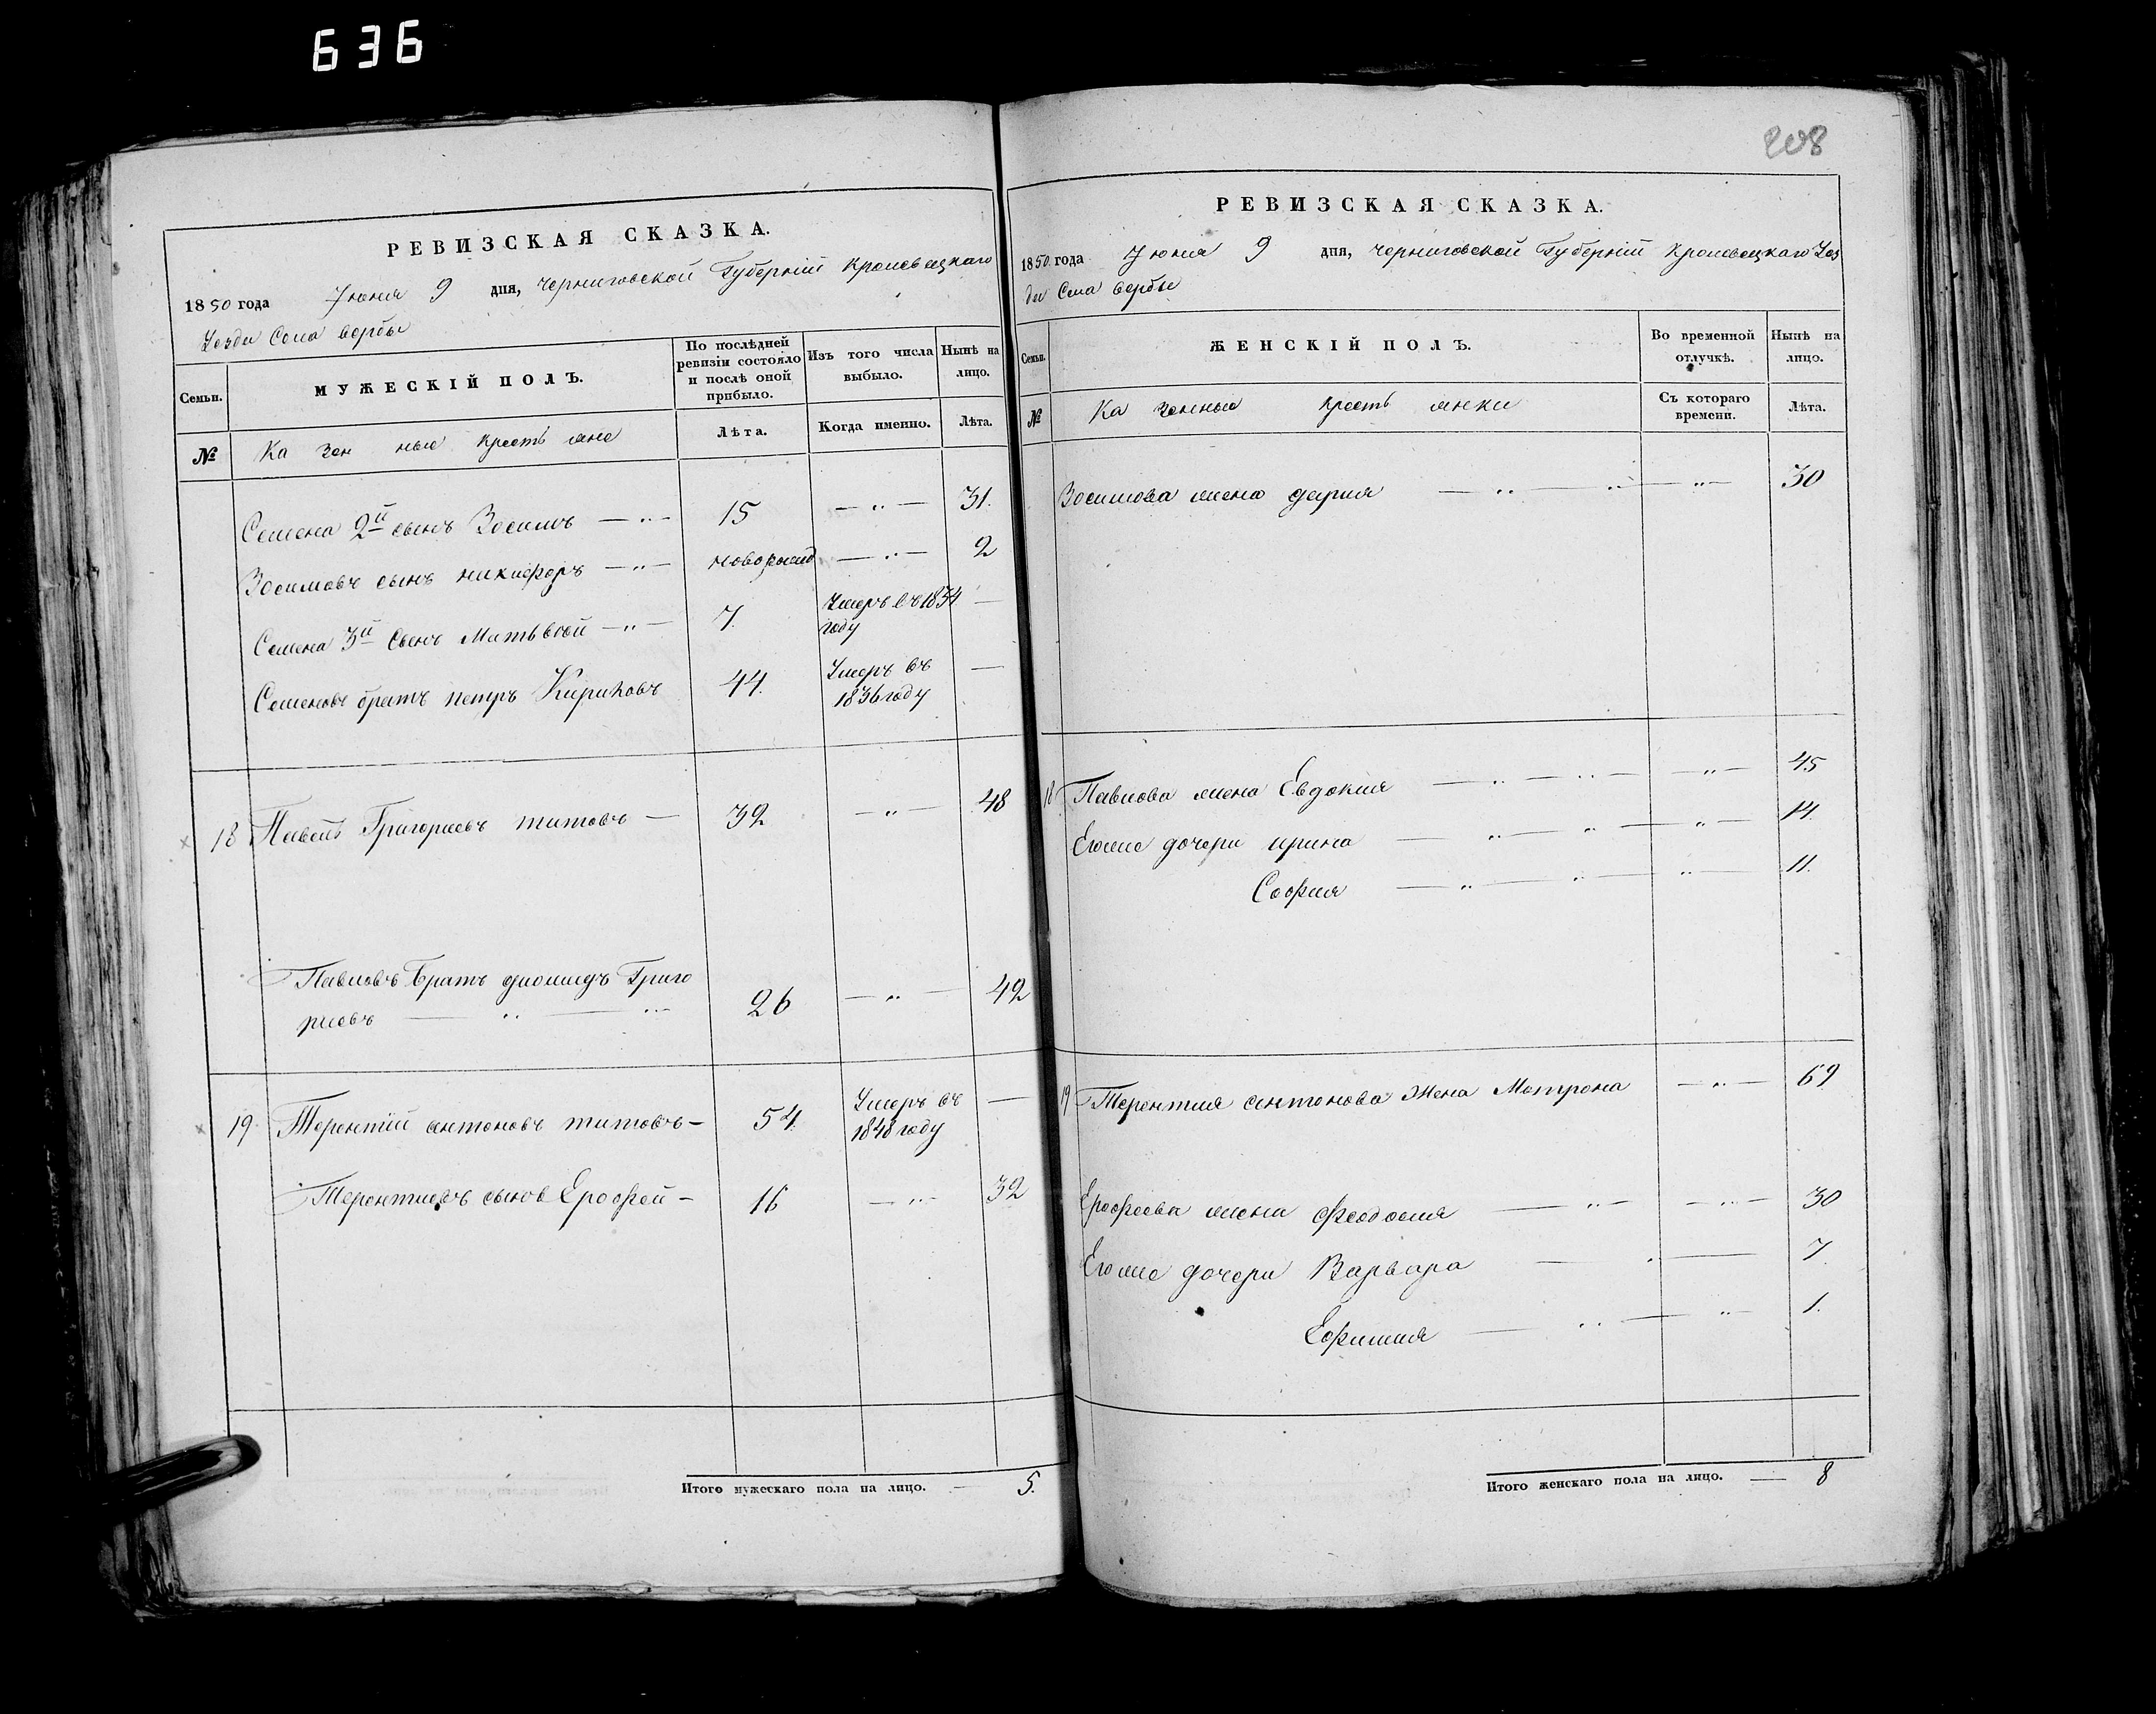 636
208
РЕВИЗСКАЯ СКАЗКА.
1850 года Июня 9 дня, Черниговской Губерніи Кролевецкаго
Уезда Села Вербы
Семьи.
МУЖЕСКІЙ ПОЛЪ.
По послѣдней ревизіи состояло и послѣ оной прибыло.
Изъ того числа выбыло.
Нынѣ на лицо.
№
Ка зен ные крестьяне
Лѣта.
Когда именно.
Лѣта.
Семена 2й сынъ Зосимъ — 15 — 31.
Зосимовъ сынъ никифоръ — новорожд — 2
Семена 3й Сынъ Матьвѣй — 7. Умеръ въ 1834 году —
Семеновъ братъ петръ Кириковъ 44. Умеръ въ 1836 году —
18 Павелъ Григориевъ титовъ — 32 — 48
Павловъ Братъ диомидъ Григо
риевъ — 26 — 42
19. Терентій антоновъ титовъ — 54. Умеръ въ 1848 году —
Терентиевъ сынъ Ерофей — 16 — 32
Итого мужескаго пола на лицо. — 5.
РЕВИЗСКАЯ СКАЗКА.
1850 года Июня 9 дня, Черниговской Губерніи Кролевецкаго Уез
да Села Вербы
Семьи.
ЖЕНСКІЙ ПОЛЪ.
Во временной отлучкѣ.
Нынѣ на лицо.
№
Ка зенные крестьянки
Съ котораго времени.
Лѣта.
Зосимова жена дария — 30
18 Павлова жена Евдокия — 45
Егоже дочери ирина — 14.
София — 11.
19 Терентия антонова Жена Матрона — 69
Ерофеева жена Феодосия — 30
Егоже дочери Варвара — 7.
Ефимия — 1.
Итого женскаго пола на лицо. — 8